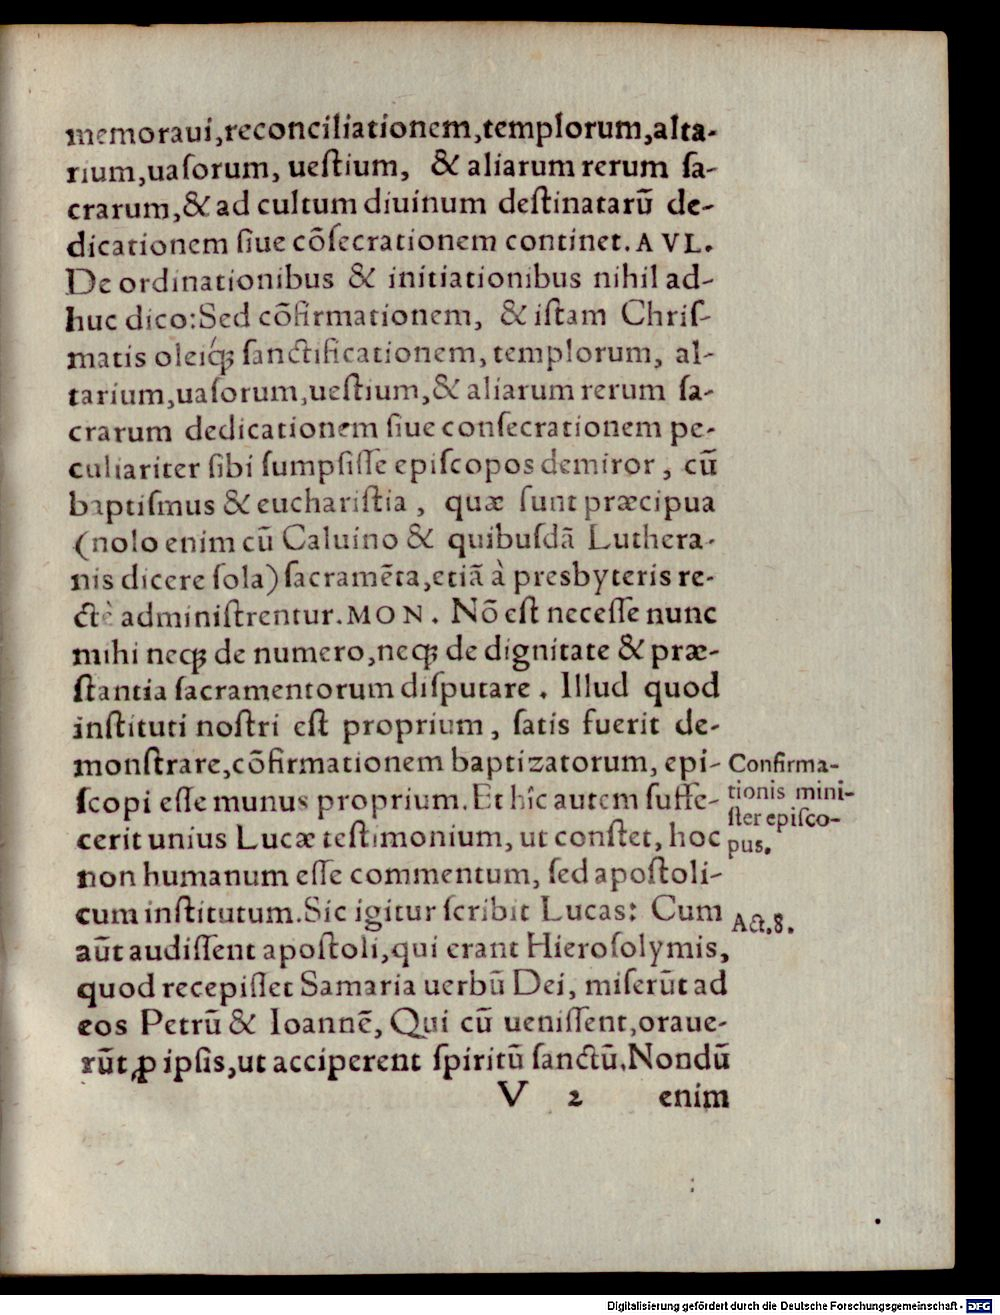 memoraui,reconciliationem,templorum,alta-
rium,uaſorum, ueſtium, & aliarum rerum ſa-
crarum,& ad cultum diuinum deſtinatarũ de-
dicationem ſiue cõſecrationem continet. AVL.
De ordinationibus & initiationibus nihil ad-
huc dico:Sed cõfirmationem, & iſtam Chriſ-
matis oleiq́; ſanctificationem, templorum, al-
tarium,uaſorum,ueſtium,& aliarum rerum ſa-
crarum dedicationem ſiue conſecrationem pe-
culiariter ſibi ſumpſiſſe epiſcopos demiror, cũ
baptiſmus & euchariſtia, quæ ſunt præcipua
(nolo enim cũ Caluino & quibuſdã Luthera-
nis dicere ſola) ſacramẽta,etiã à presbyteris re-
ctè adminiſtrentur. MON. Nõ eſt neceſſe nunc
mihi neq; de numero,neq; de dignitate & præ-
ſtantia ſacramentorum diſputare. Illud quod
inſtituti noſtri eſt proprium, ſatis fuerit de-
monſtrare,cõfirmationem baptizatorum, epi-
ſcopi eſſe munus proprium. Et hîc autem ſuffe-
cerit unius Lucæ teſtimonium, ut conſtet, hoc
non humanum eſſe commentum, ſed apoſtoli-
cum inſtitutum. Sic igitur ſcribit Lucas: Cum
aũt audiſſent apoſtoli,qui erant Hieroſolymis,
quod recepiſſet Samaria uerbũ Dei, miſerũt ad
eos Petrũ & Ioannẽ, Qui cũ ueniſſent,oraue-
rũt ꝓ ipſis,ut acciperent ſpiritũ ſanctũ. Nondũ
V 2 enim
Confirma-
tionis mini-
ſter epiſco-
pus.
Act. 8.
Digitalisierung gefördert durch die Deutsche Forschungsgemeinschaft - DFG